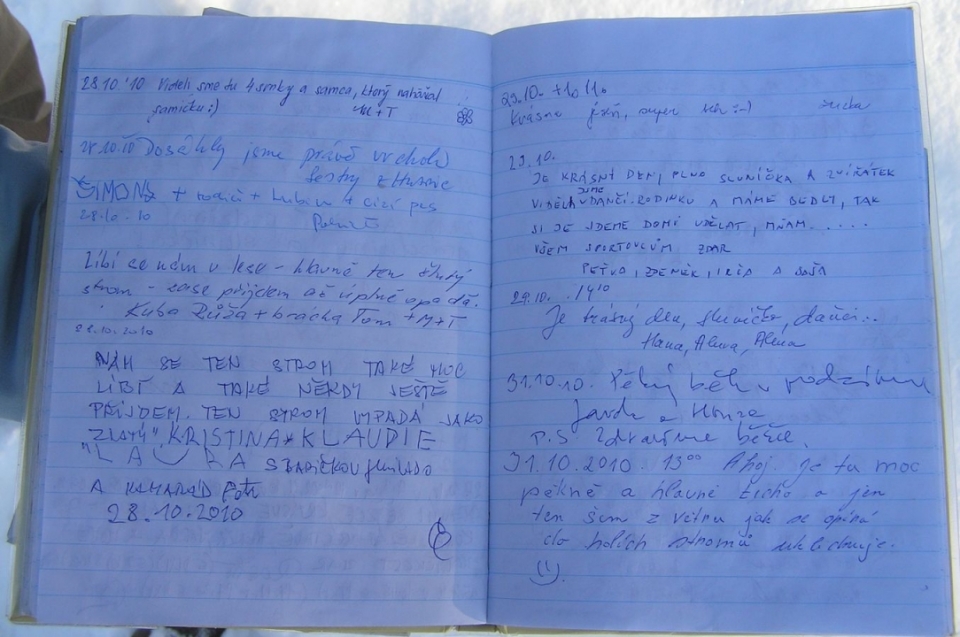 28.10 '10 Viděli sme tu 4 srnky a samca, ktorý naháňal
samičku :)
M+T
28.10.10 Dosáhly jsme právě vrcholu
Sestry z Hustě
ŠIMONS + rodiče + + cizí pes
28.10.10
Líbí se nám v lese - hlavně ten žlutý
strom - zase přijdem až úplně opadá.
Kuba Růža + brácha Tom + M+T
28.10.2010
NÁM SE TEN STROM TAKÉ MOC
LÍBÍ A TAKÉ NĚKDY JEŠTĚ
PŘIJDEM. TEN STROM VYPADÁ JAKO
"ZLATÝ". KRISTINA + KLAUDIE
LAURA S BABIČKOU
A KAMARÁD Petr
28.10.2010
29.10.
Krásná jeseň, super :-)
29.10.
JE KRÁSNÝ DEN, PLNO SLUNÍČKA A ZVÍŘÁTEK
VIDĚLI JSME DANČÍ RODINKU A MÁME BEDLY, TAK
SI JE JDEME DOMŮ UDĚLAT, MŇAM.....
VŠEM SPORTOVCŮM ZDAR
PEŤKO, ZDENĚK, A
29.10. 14¹⁰
Je krásný den, sluníčko, daňci...
Hana, Alena, Alena
31.10.10. Pěkný běh v podzimu
Jarda a Honza
P.S. Zdravíme běžce.
31.10.2010. 13⁰⁰ Ahoj. Je tu moc
pěkně a hlavně ticho a jen
ten šum z větru jak se opírá
do holích stromů uklidňuje.